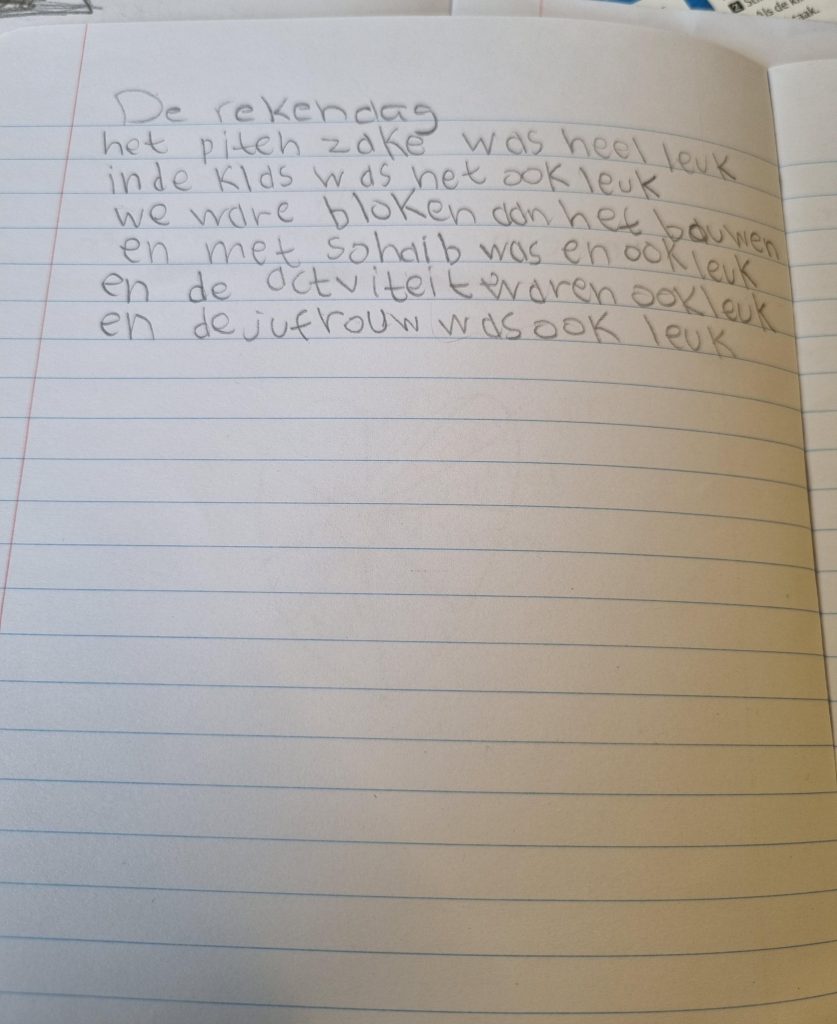 De rekendag
het piteh zake was heel leuk
inde klas was het ook leuk
we ware bloken aan het bouwen
en met sohaib was en ook leuk
en de actviteit waren ook leuk
en de jufrouw was ook leuk